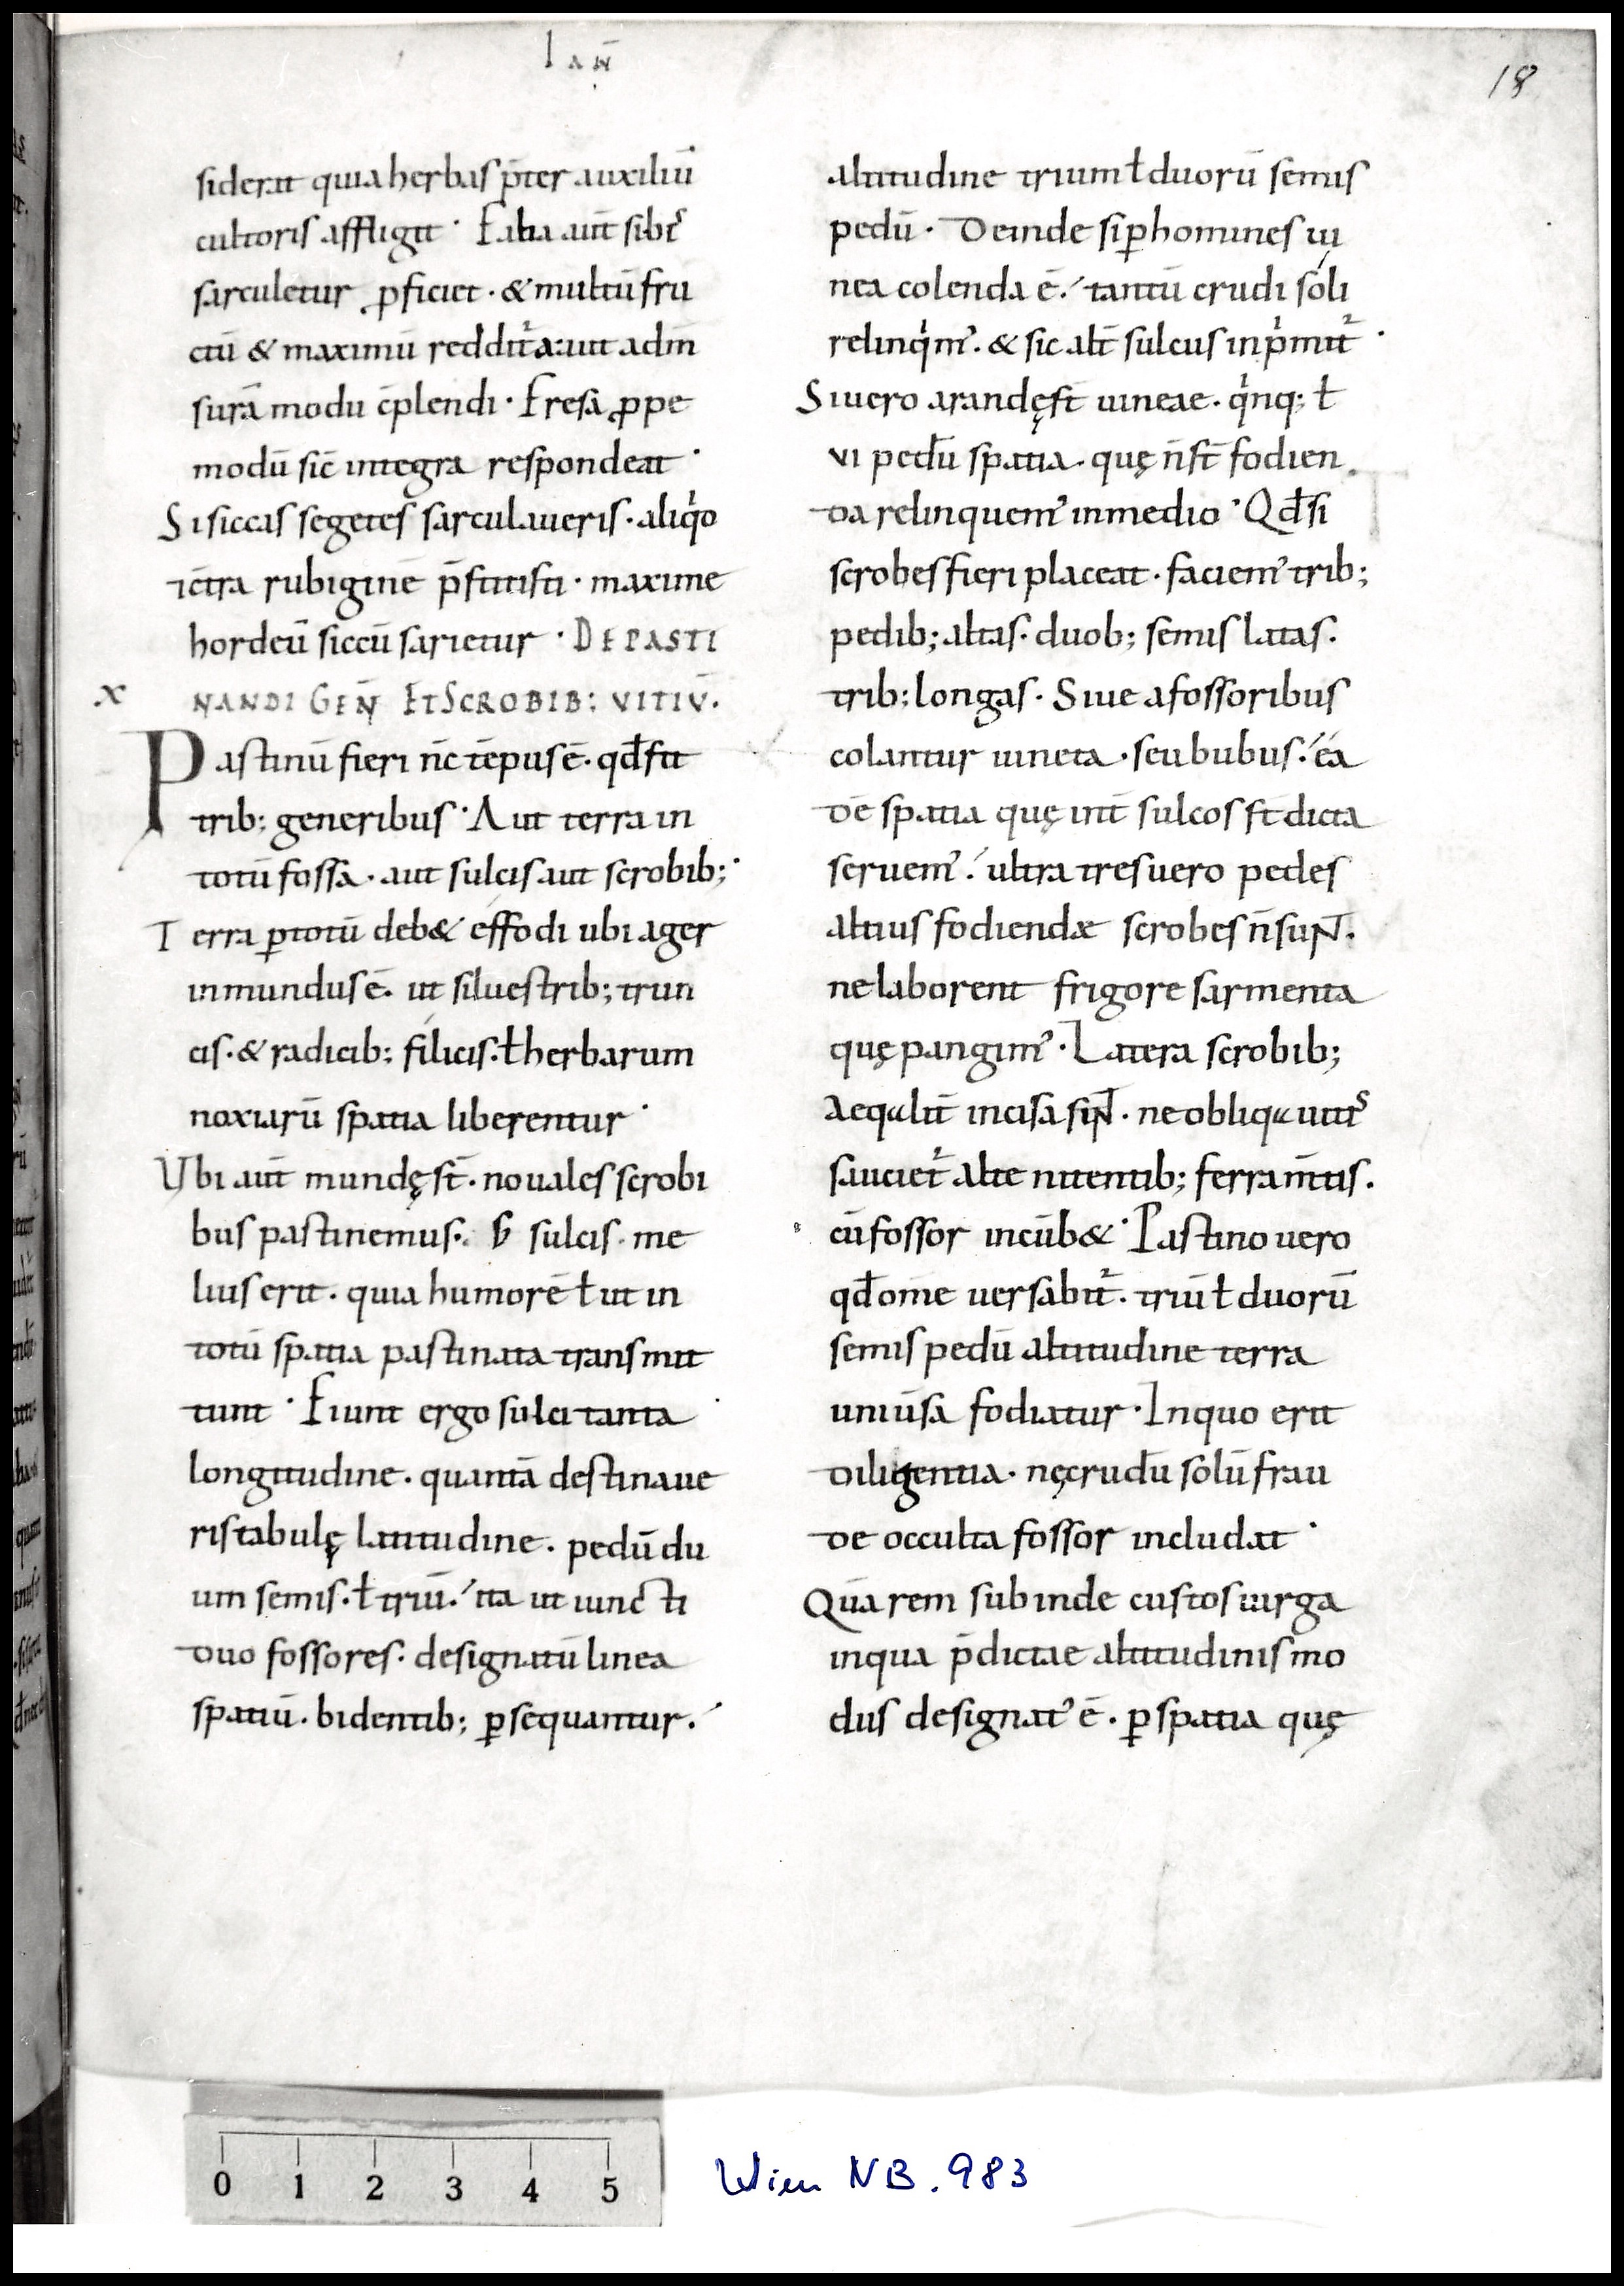 Ian̄
18
siderit quia herbas p̄ter auxiliū
cultoris affligit· Faba aūt si bis
sarculetur ꝓficiet· & multū fru
ctū & maximū redditᷣ a:uit ad m̄
surā modii c̄plendi· Fresa ꝓpe
modū sic̄ integra respondeat·
Si siccas segetes sarculaueris· aliqͥd
ic̄tra rubiginē p̄stitisti· maxime
hordeū siccū sarietur· DE PASTI
X NANDI GEN̄ ET SCROBIB; VITIŪ.
Pastinū fieri n̄c tēpus ē· qđ fit
trib; generibus· Aut terra in
totū fossa· aut sulcis aut scrobib;·
Terra ꝑ totū deb& effodi ubi ager
inmundus ē· ut siluestrib; trun
cis· & radicib; filicis· ł herbarum
noxiarū spatia liberentur·
Vbi aūt mundę st̄· nouales scrobi
bus pastinemus· sulcis· me
lius erit· quia humorē ł ut in
totū spatia pastinata transmit
tunt· Fiunt ergo sulci tanta
longitudine· quantā destinaue
ris tabulę latitudine· pedū du
um semis· ł triū· ita ut iuncti
duo fossores· designatū linea
spatiū· bidentib; ꝑsequantur·
altitudine trium ł duorū semis
pedū· Deinde si ꝑ homines ui
nea colenda ē· tantū crudi soli
relinqͥm᾽· & sic alt̄ sulcus inpͥmitᷣ·
Si uero arandę st̄ uineae· qͥnq; ł
VI pedū spatia· quę n̄ st̄ fodien
da relinquem᾽ in medio· Qđ si
scrobes fieri placeat· faciem᾽ trib;
pedib; altas· duob; semis latas·
trib; longas· Siue a fossoribus
colantur uineta· seu bubus· ea
dē spatia quę int̄ sulcos st̄ dicta
seruem᾽· ultra tres uero pedes
altius fodiendæ scrobes n̄ sunt·
ne laborent frigore sarmenta
quę pangim᾽· Latera scrobib;
aequalit̄ incisa sint· ne obliqua uitis
saucietᷣ alte nitentib; ferram̄tis·
cū fossor incūb&· Pastino uero
qđ om̄e uersabitᷣ· triū ł duorū
semis pedū altitudine terra
uniūsa fodiatur· In quo erit
diligentia· nę crudū solū frau
de occulta fossor includat·
Quā rem subinde custos uirga
in qua p̄dictae altitudinis mo
dus designat᾽ ē· ꝑ spatia quę
0 1 2 3 4 5
Wien NB. 983